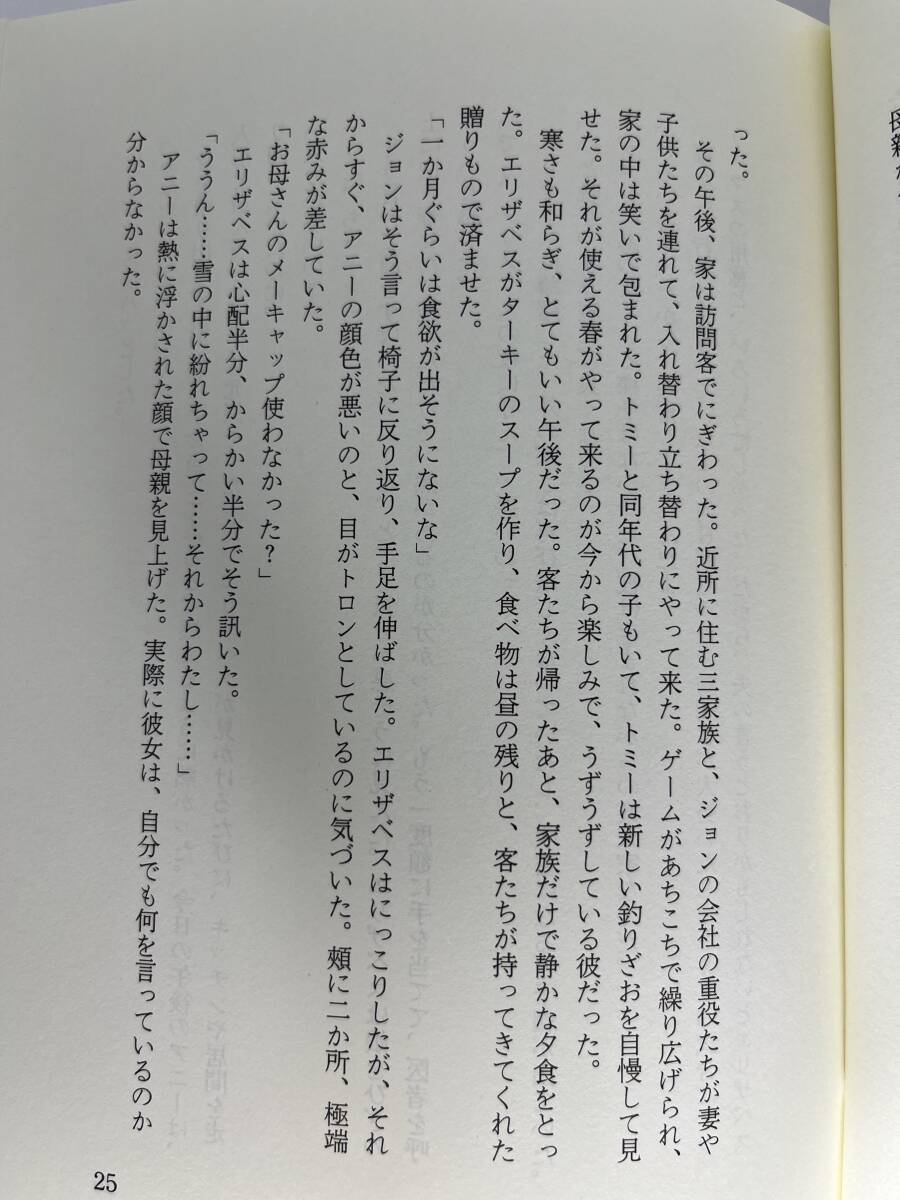 った。
その午後、家は訪問客でにぎわった。近所に住む三家族と、ジョンの会社の重役たちが妻や
子供たちを連れて、入れ替わり立ち替わりにやって来た。ゲームがあちこちで繰り広げられ、
家の中は笑いで包まれた。トミーと同年代の子もいて、トミーは新しい釣りざおを自慢して見
せた。それが使える春がやって来るのが今から楽しみで、うずうずしている彼だった。
寒さも和らぎ、とてもいい午後だった。客たちが帰ったあと、家族だけで静かな夕食をとっ
た。エリザベスがターキーのスープを作り、食べ物は昼の残りと、客たちが持ってきてくれた
贈りもので済ませた。
「一か月ぐらいは食欲が出そうにないな」
ジョンはそう言って椅子に反り返り、手足を伸ばした。エリザベスはにっこりしたが、それ
からすぐ、アニーの顔色が悪いのと、目がトロンとしているのに気づいた。頰に二か所、極端
な赤みが差していた。
「お母さんのメーキャップ使わなかった?」
エリザベスは心配半分、からかい半分でそう訊いた。
「ううん……雪の中に紛れちゃって……それからわたし……」
アニーは熱に浮かされた顔で母親を見上げた。実際に彼女は、自分でも何を言っているのか
分からなかった。
25